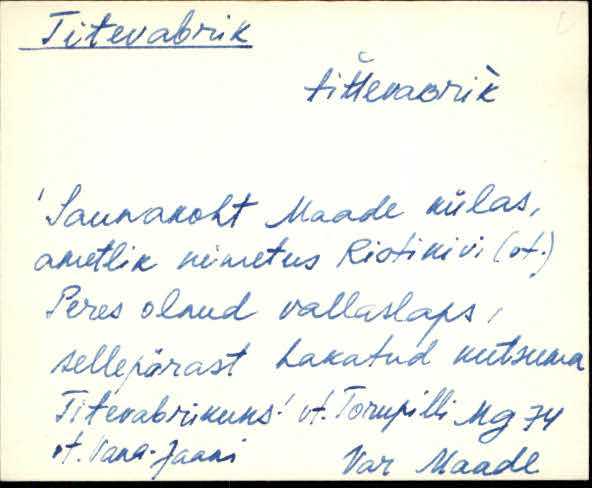 Titevabrik
tĭttevaʙrìk
'Saunakoht Maade külas,
ametlik nimetus Ristikivi (vt.)
Peres olnud vallaslaps,
sellepärast hakatud kutsuma
Titevabrikuks' vt. Torupilli Mg 74
vt. Vana-Jaani Var Maade